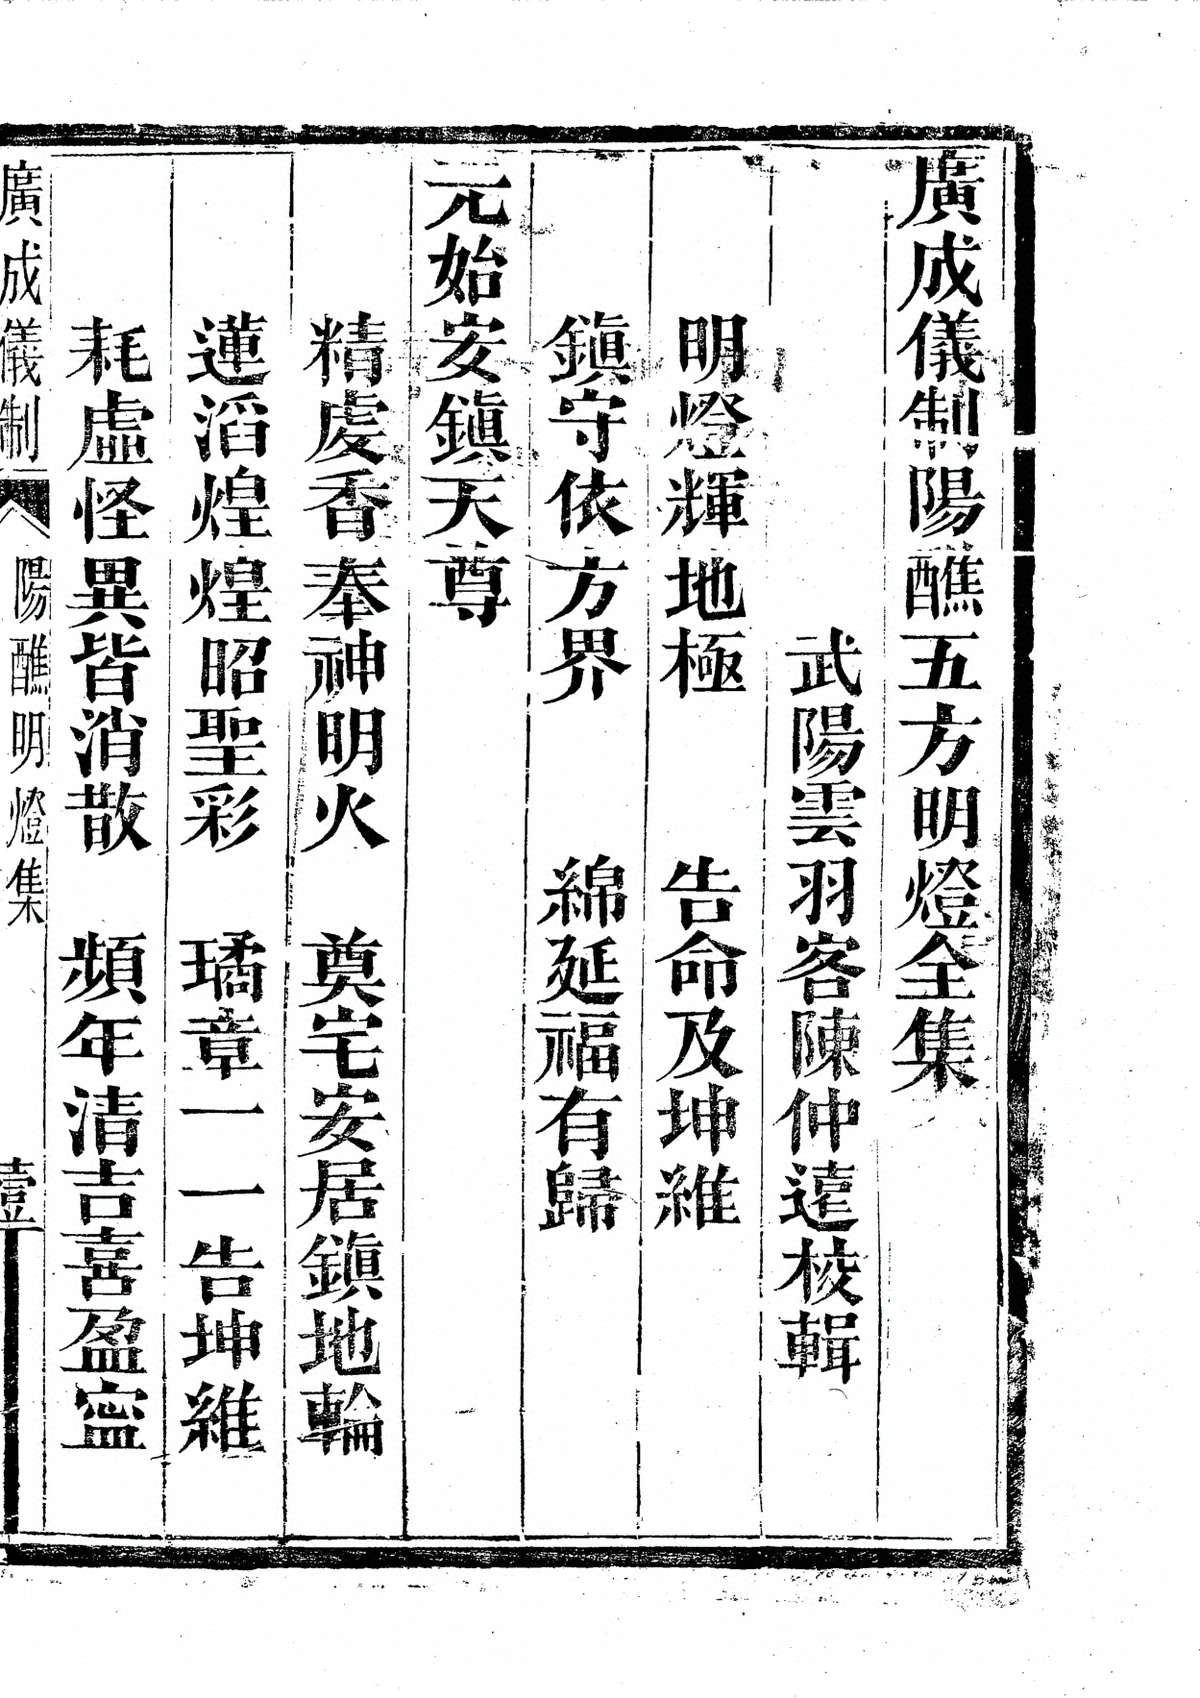 廣成儀制陽醮五方明燈全集
武陽雲羽客陳仲遠校輯
明燈輝地極　告命及坤維
鎮守依方界　綿延福有歸
元始安鎮天尊
精虔香奉神明火　奠宅安居鎮地輪
蓮滔煌煌昭聖彩　璚章一一告坤維
耗虛怪異皆消散　頻年清吉喜盈寍
廣成儀制　陽醮明燈集　壹